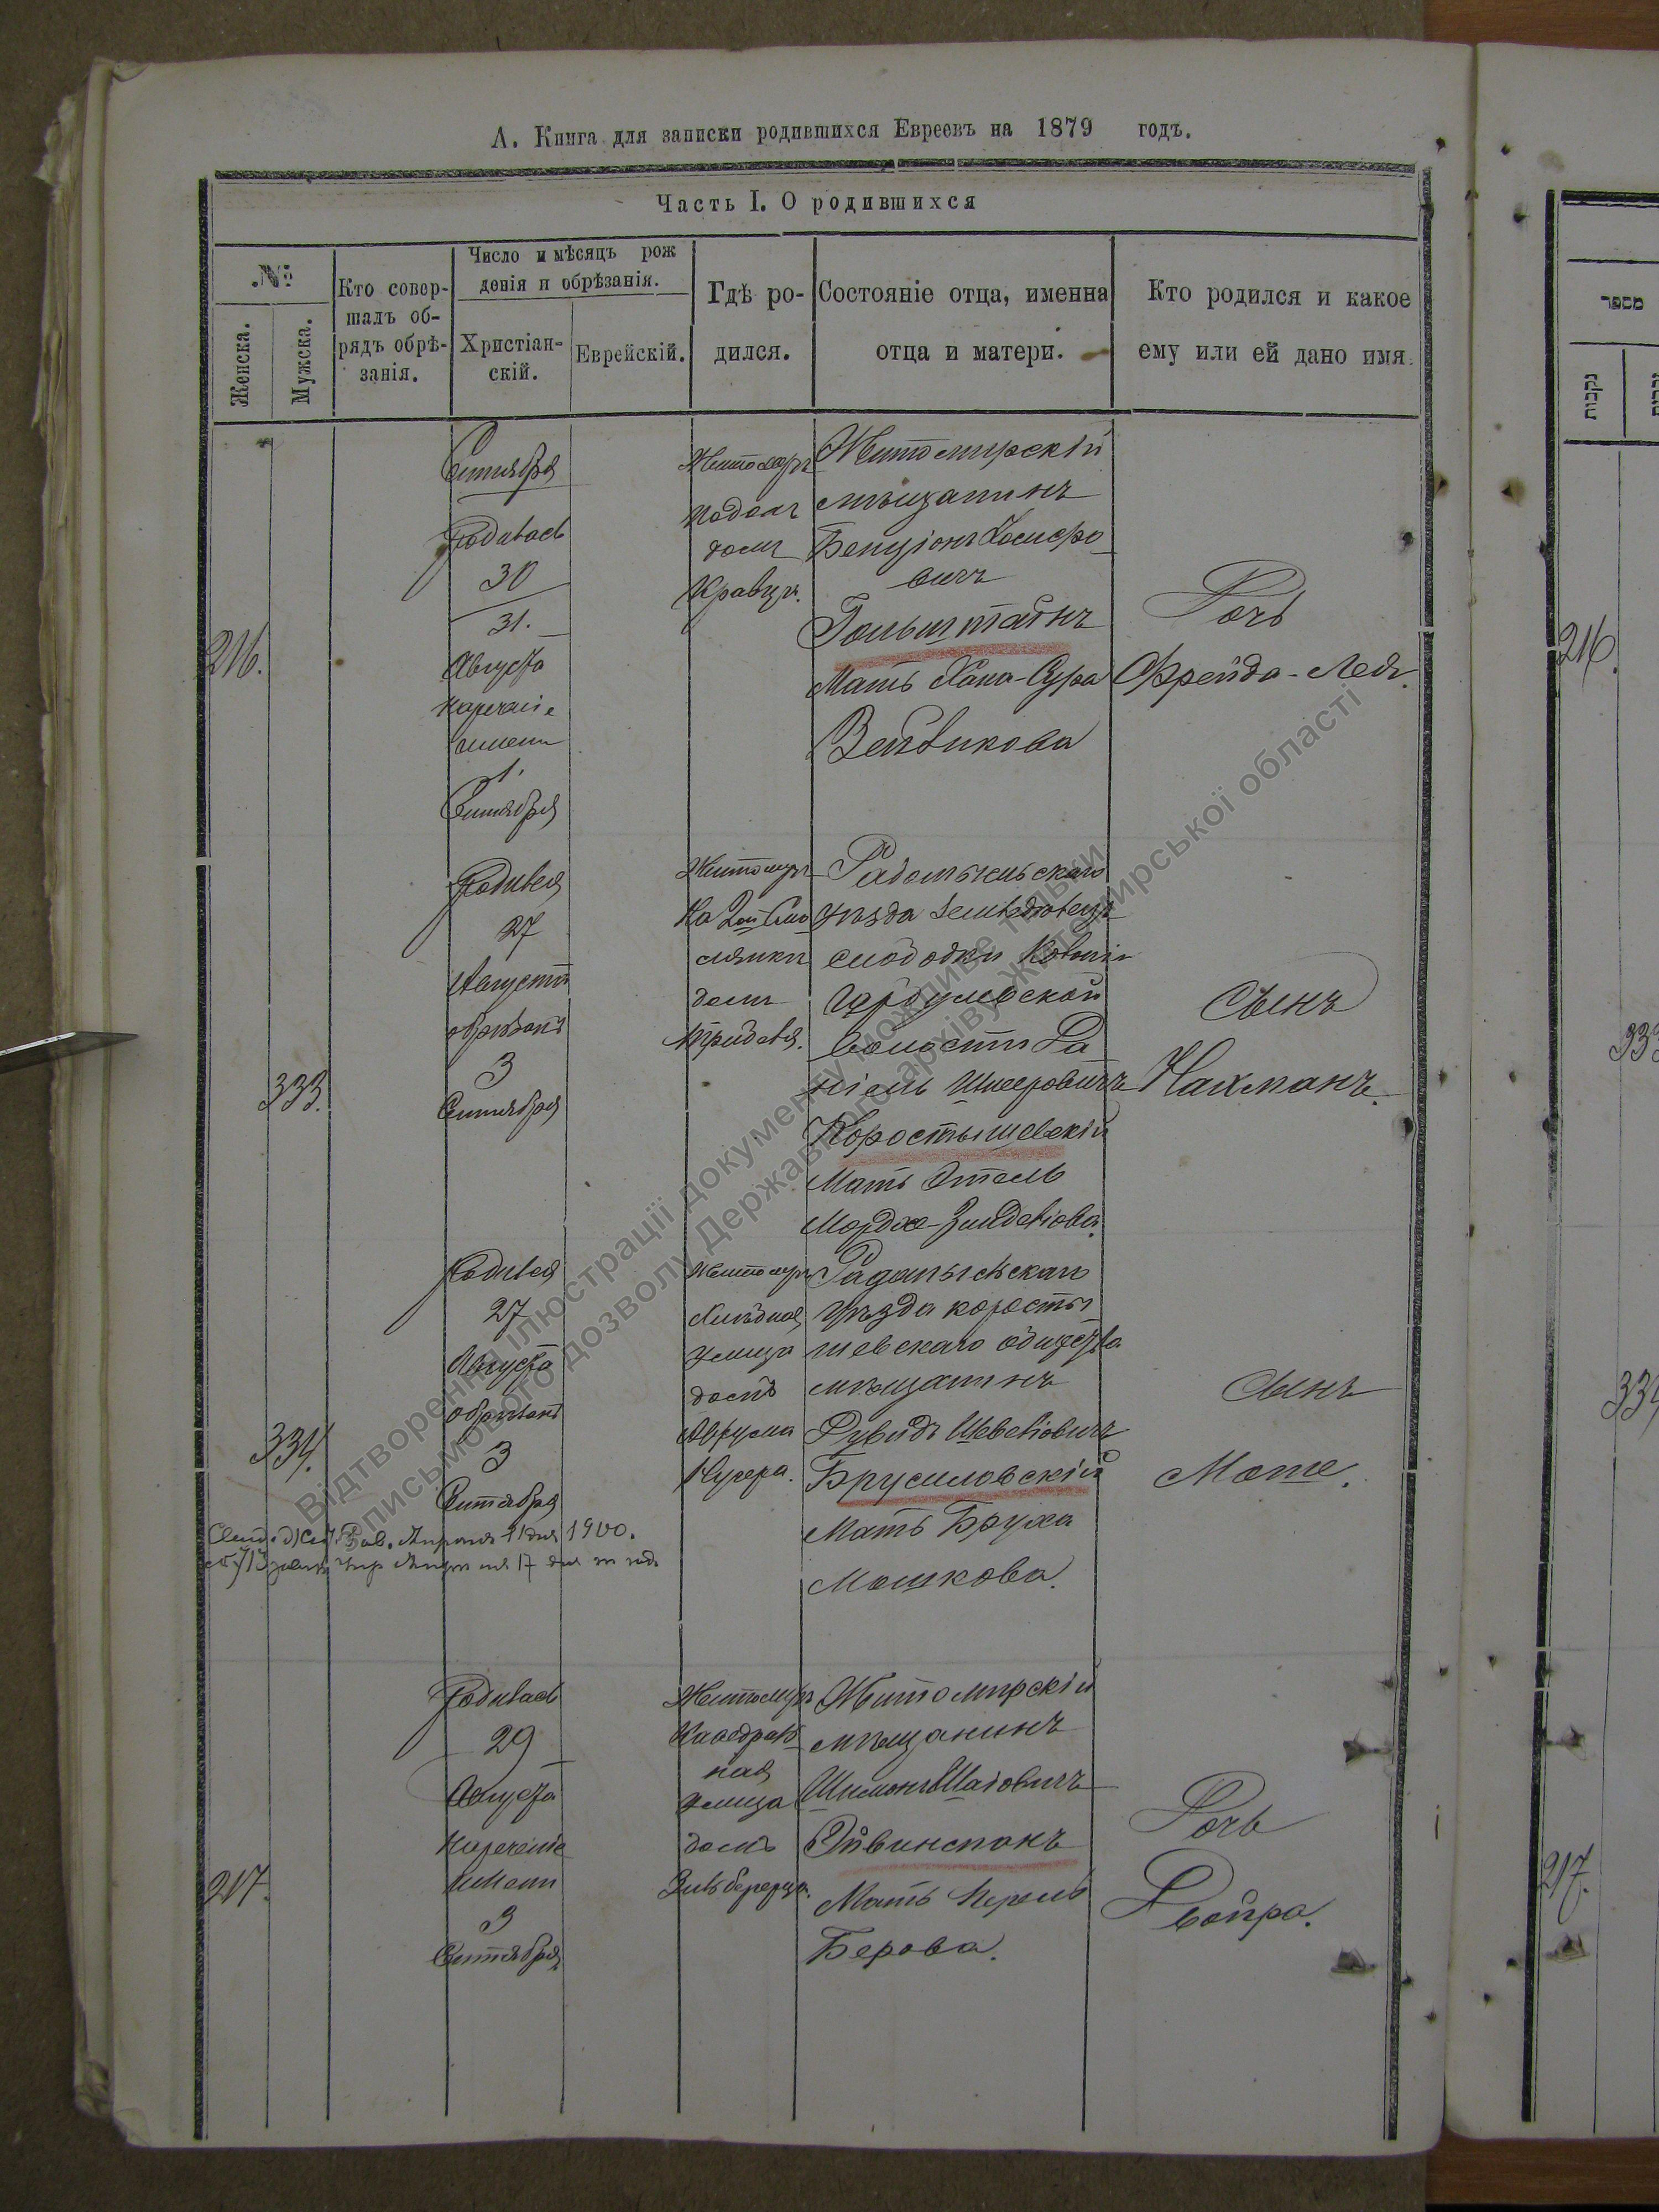 А. Книга для записки родившихся Евреевъ на 1879 годъ.
Часть I. О родившихся
№
Женска.
Мужска.
Кто совер-
шалъ об-
рядъ обрѣ-
занія.
Число и мѣсяцъ рож
денія и обрѣзанія.
Христіан-
скій.
Еврейскій.
Гдѣ ро-
дился.
Состояніе отца, именна
отца и матери.
Кто родился и какое
ему или ей дано имя.
216.
Сентября
Родилась
30
31.
Августа
Наречение
имени
1.
Сентября
Житомиръ
Подолъ
домъ
Кравца.
Житомирскій
мѣщанинъ
Бенціонъ
вичъ
Гольштайнъ
Мать Хана-Сура
Дочь
Фрейда-Лея.
333.
Родился
27
Августа
обрѣзанъ
3
Сентября
Житомиръ
На 2ой
домъ
Радомысльскаго
уѣзда земледѣлецъ
волости
Шмеровичъ
Коростышевскій
Мать Этель
Мордхо-Зильдовова
Сынъ
Нахманъ.
334.
Родился
27
Августа
обрѣзанъ
3
Сентября
Житомиръ
Хлѣбная
улица
домъ
Аврума
Кучера.
Радомысльскаго
уѣзда коросты
шевскаго общества
мѣщанинъ
Рувидъ
Брусиловскій
Мать Бруха
Мошкова.
Сынъ
Моте.
1900.
217.
Родилась
29
Августа
Наречение
имени
3
Сентября
Житомиръ
Каѳедраль
ная
улица
домъ
Зильберерца.
Житомирскій
мѣщанинъ
Шимонъ
Эйвинспанъ
Мать Перель
Берова.
Дочь
Двойра.
מספר
נקבות
216.
333
334
217.
Відтворення ілюстрації документу можливе тільки
з письмового дозволу Державного архіву Житомирської області